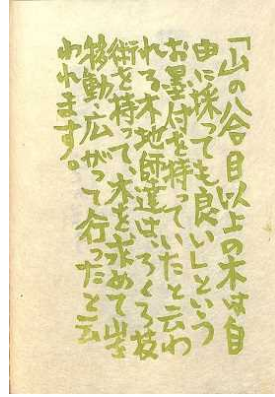 「山の八合目以上の木は自
由に採っても良い」という
お墨付を持っていたと云わ
れる木地師達は、ろくろ技
術を持って、木を求めて山を
移動、広がって行ったと云
われます。